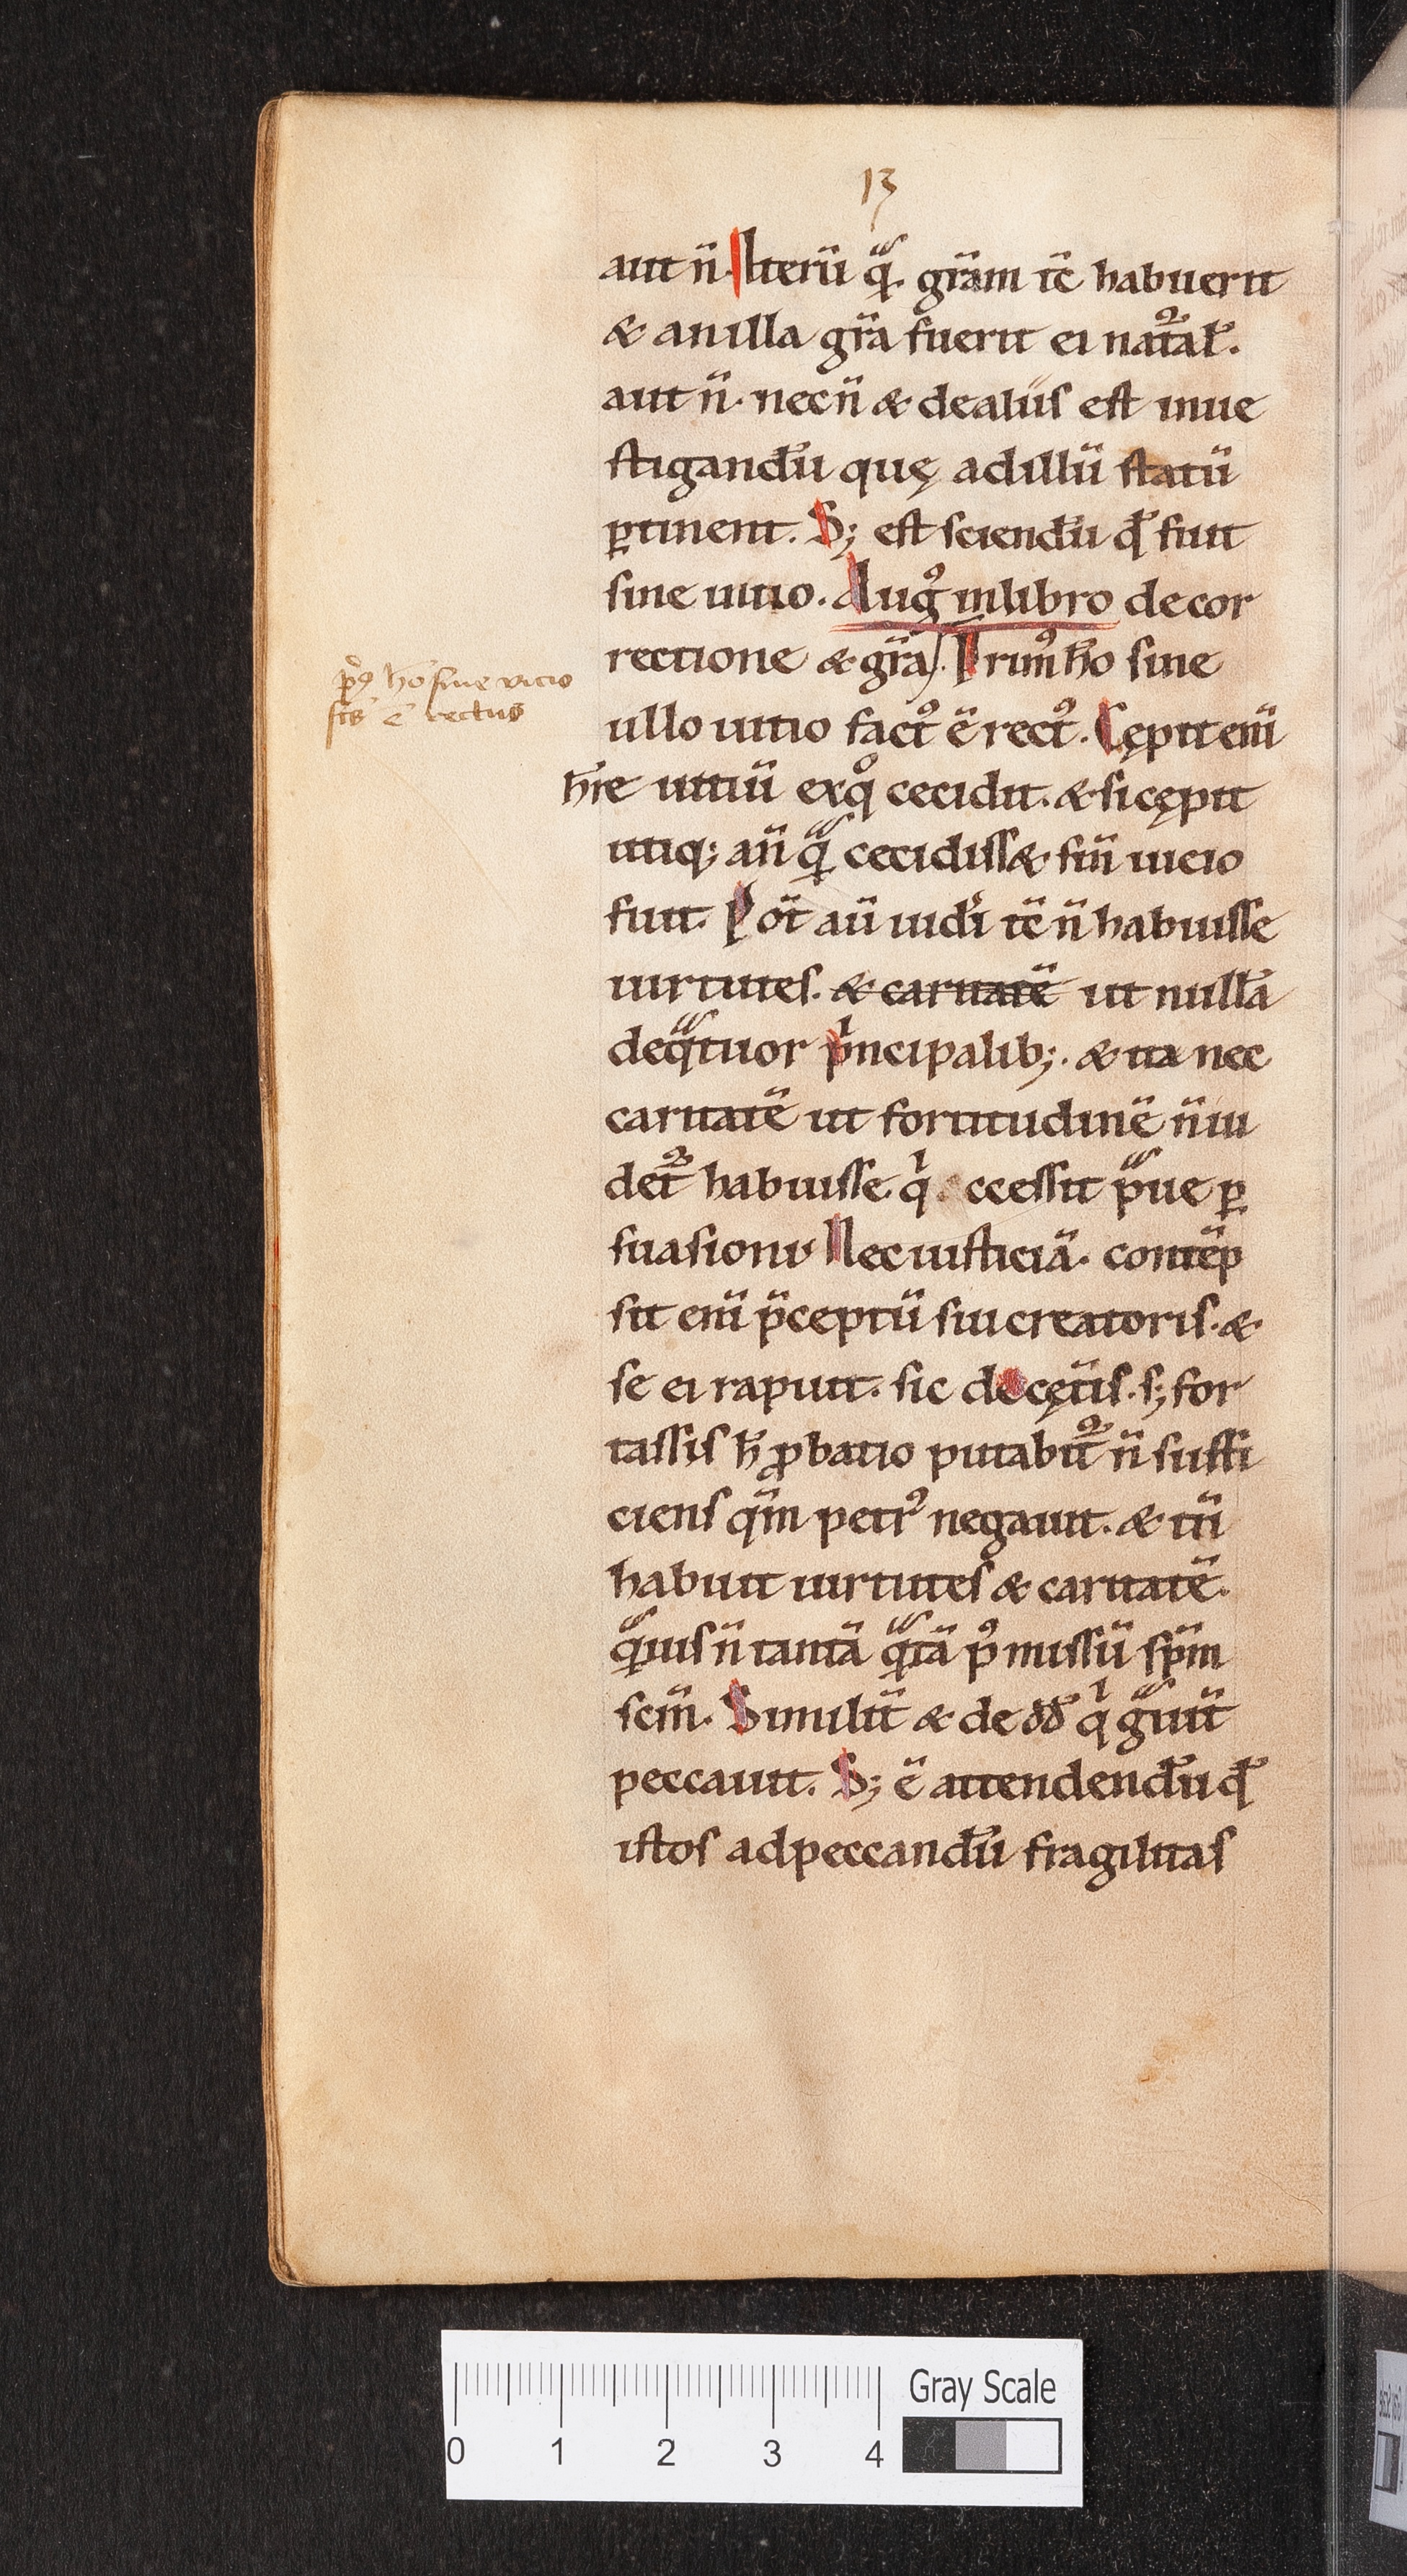 13
aut n̄. Iterū qᵃ. grām tc̄ habuerit
& an illa grā fuerit ei nat᷑al̄.
aut n̄. nec n̄ & de aliis est inue
stigandū quę ad illū statū
ꝑtinent. S; est sciendū qd̄ fuit
sine uitio. Augꝰ in libro de cor
rectione & grā. Primꝰ hō sine
pꝰ hō sine vicio
fcs̄ ē rectus
ullo uitio factꝰ ē rectꝰ. Cępit enī
hr̄e uitiū ex qͦ cecidit. & si cępit
utiq; an̄ qᵃ cecidiss& sin̄ uicio
fuit. Pot̄ aū uidi᷑ tc̄ n̄ habuisse
uirtutes. & caritatē ut nullā
de qᵃtuor pⁱncipalib;. & ita nec
caritatē ut fortitudinē n̄ ui
det᷑ habuisse. qⁱ ccessit pᵃue ꝑ
suasioni Nec iusticiā. contēp
sit enī p̄ceptū sui creatoris. &
se ei rapuit. sic de cęt̄is. s; for
tassis h̄ ꝓbatio putabit᷑ n̄ suffi
ciens qm̄ petrꝰ negauit. & tn̄
habuit uirtutes & caritatē.
qᵃuis n̄ tantā qᵃtā pꝰ missū spm̄
scm̄. Similit̄ & de dd̄ qⁱ gᵃuit̄
peccauit. S; ē attendendū qd̄
istos ad peccandū fragilitas
Gray Scale
0 1 2 3 4